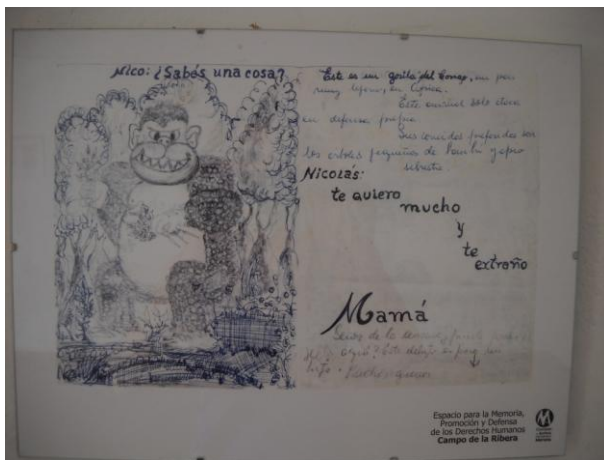 Nico: ¿Sabés una cosa?
Este es un gorila del Congo, un país
muy lejano, en África.
Este animal sólo ataca
en defensa propia.
Sus comidas preferidas son
los árboles pequeños de bambú y apio
silvestre.
Nicolás:
te quiero
mucho
y
te
extraño
Mamá
Espacio para la Memoria,
Promoción y Defensa
de los Derechos Humanos
Campo de la Ribera